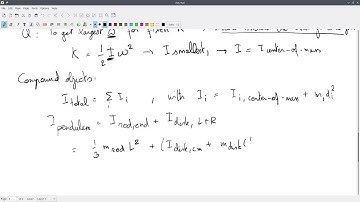 Q: To get largest ω for given K
K = 1/2 I ω² → I smallest, → I = I center-of-mass
Compound objects:
I total = Σ i I i , with I i = I i, center-of-mass + m i d i²
I pendulum = I rod, end + I disk, L+R
= 1/3 m rod L² + (I disk, cm + m disk (